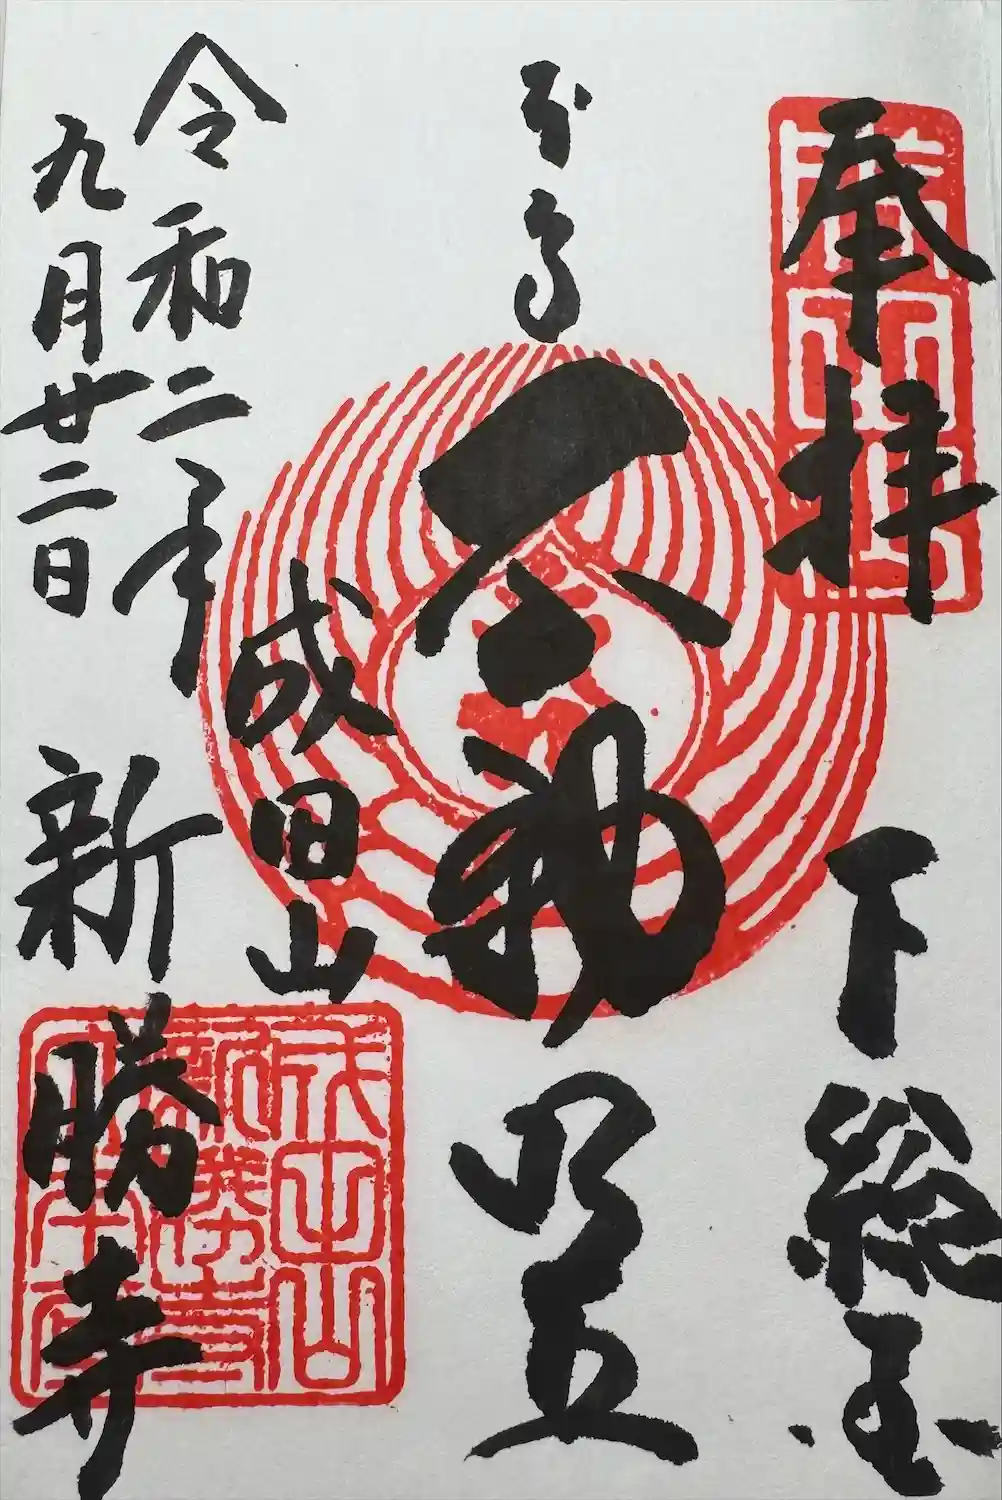 奉拝
下総国
本尊
不動明王
成田山
新勝寺
令和二年
九月廿二日
成田山
新勝寺